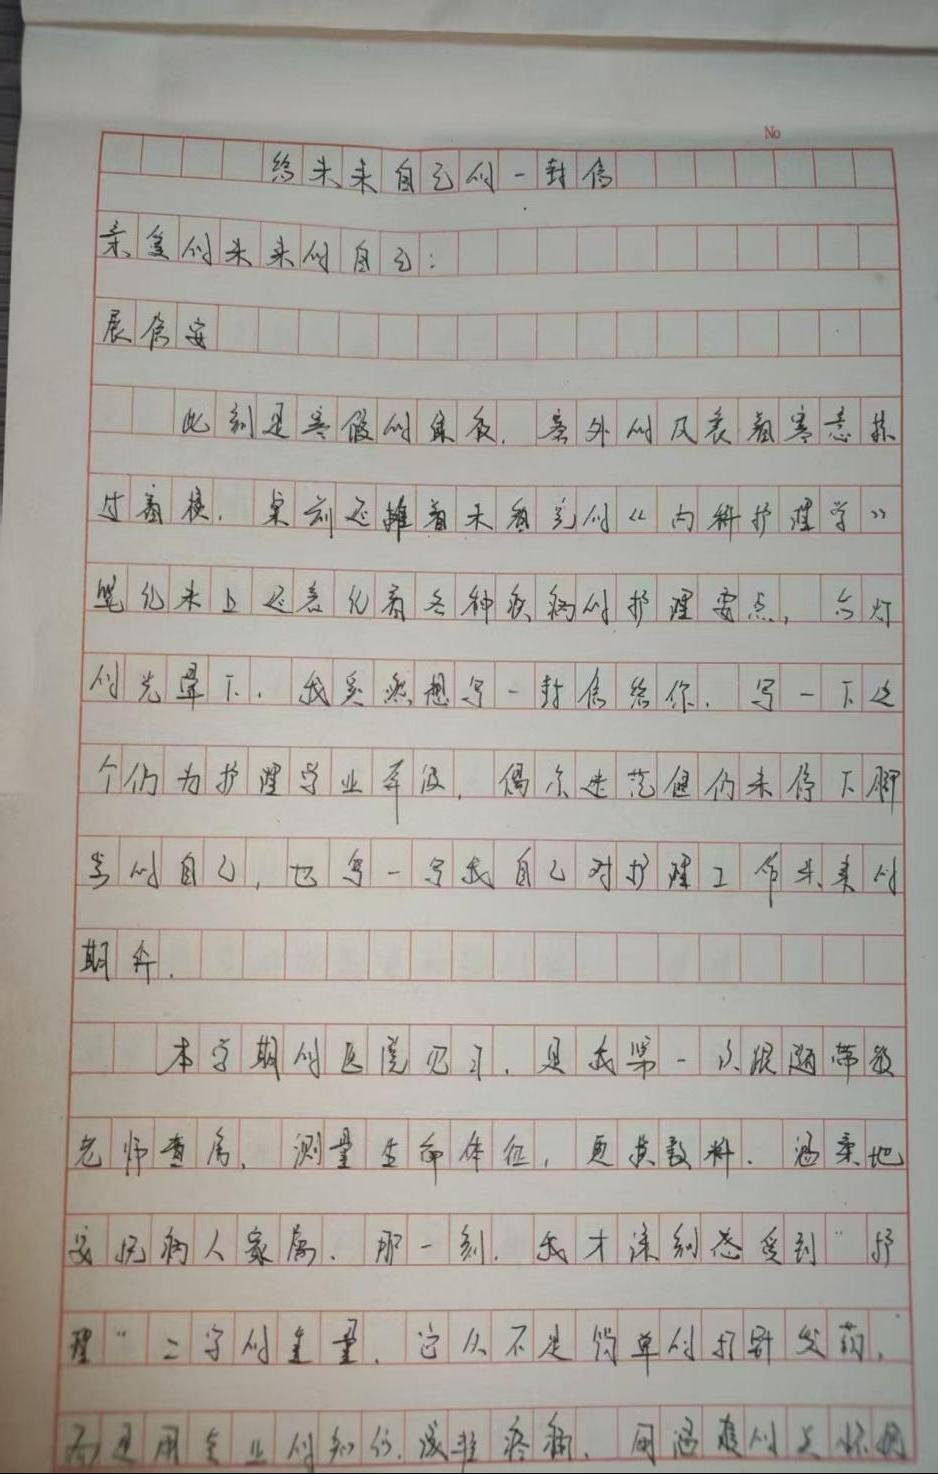 No
给未来自己的一封信
亲爱的未来的自己:
展信安
此刻是寒假的深夜,窗外的风裹着寒意掠
过着楼,桌前还摊着未看完的《内科护理学》
笔记本上还记着各种疾病的护理要点,台灯
的光晕下,我突然想写一封信给你,写一下这
个仍为护理学业奔波,偶尔迷茫但仍未停下脚
步的自己,也写一写我自己对护理工作未来的
期许.
本学期的医院见习,是我第一次跟随带教
老师查房、测量生命体征,更换敷料.温柔地
安抚病人家属.那一刻.我才深刻感受到"护
理"二字的重量.它从不是简单的打针发药,
而是用专业的知识.减轻疼痛,用温度的关怀